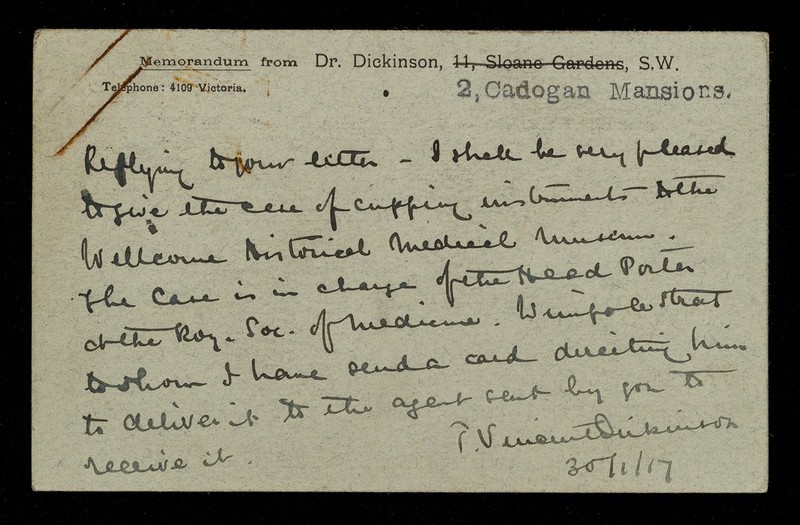 Memorandum from Dr. Dickinson, 11, Sloane Gardens, S.W.
Telephone: 4109 Victoria.
2, Cadogan Mansions.
Replying to your letter – I shall be very pleased
to give the case of cupping instruments to the
Wellcome Historical Medical Museum.
The Case is in charge of the Head Porter
at the Roy. Soc. of Medicine. Wimpole Street
to whom I have send a card directing him
to deliver it to the agent sent by you to
receive it.
T. Vincent Dickinson
30/1/17